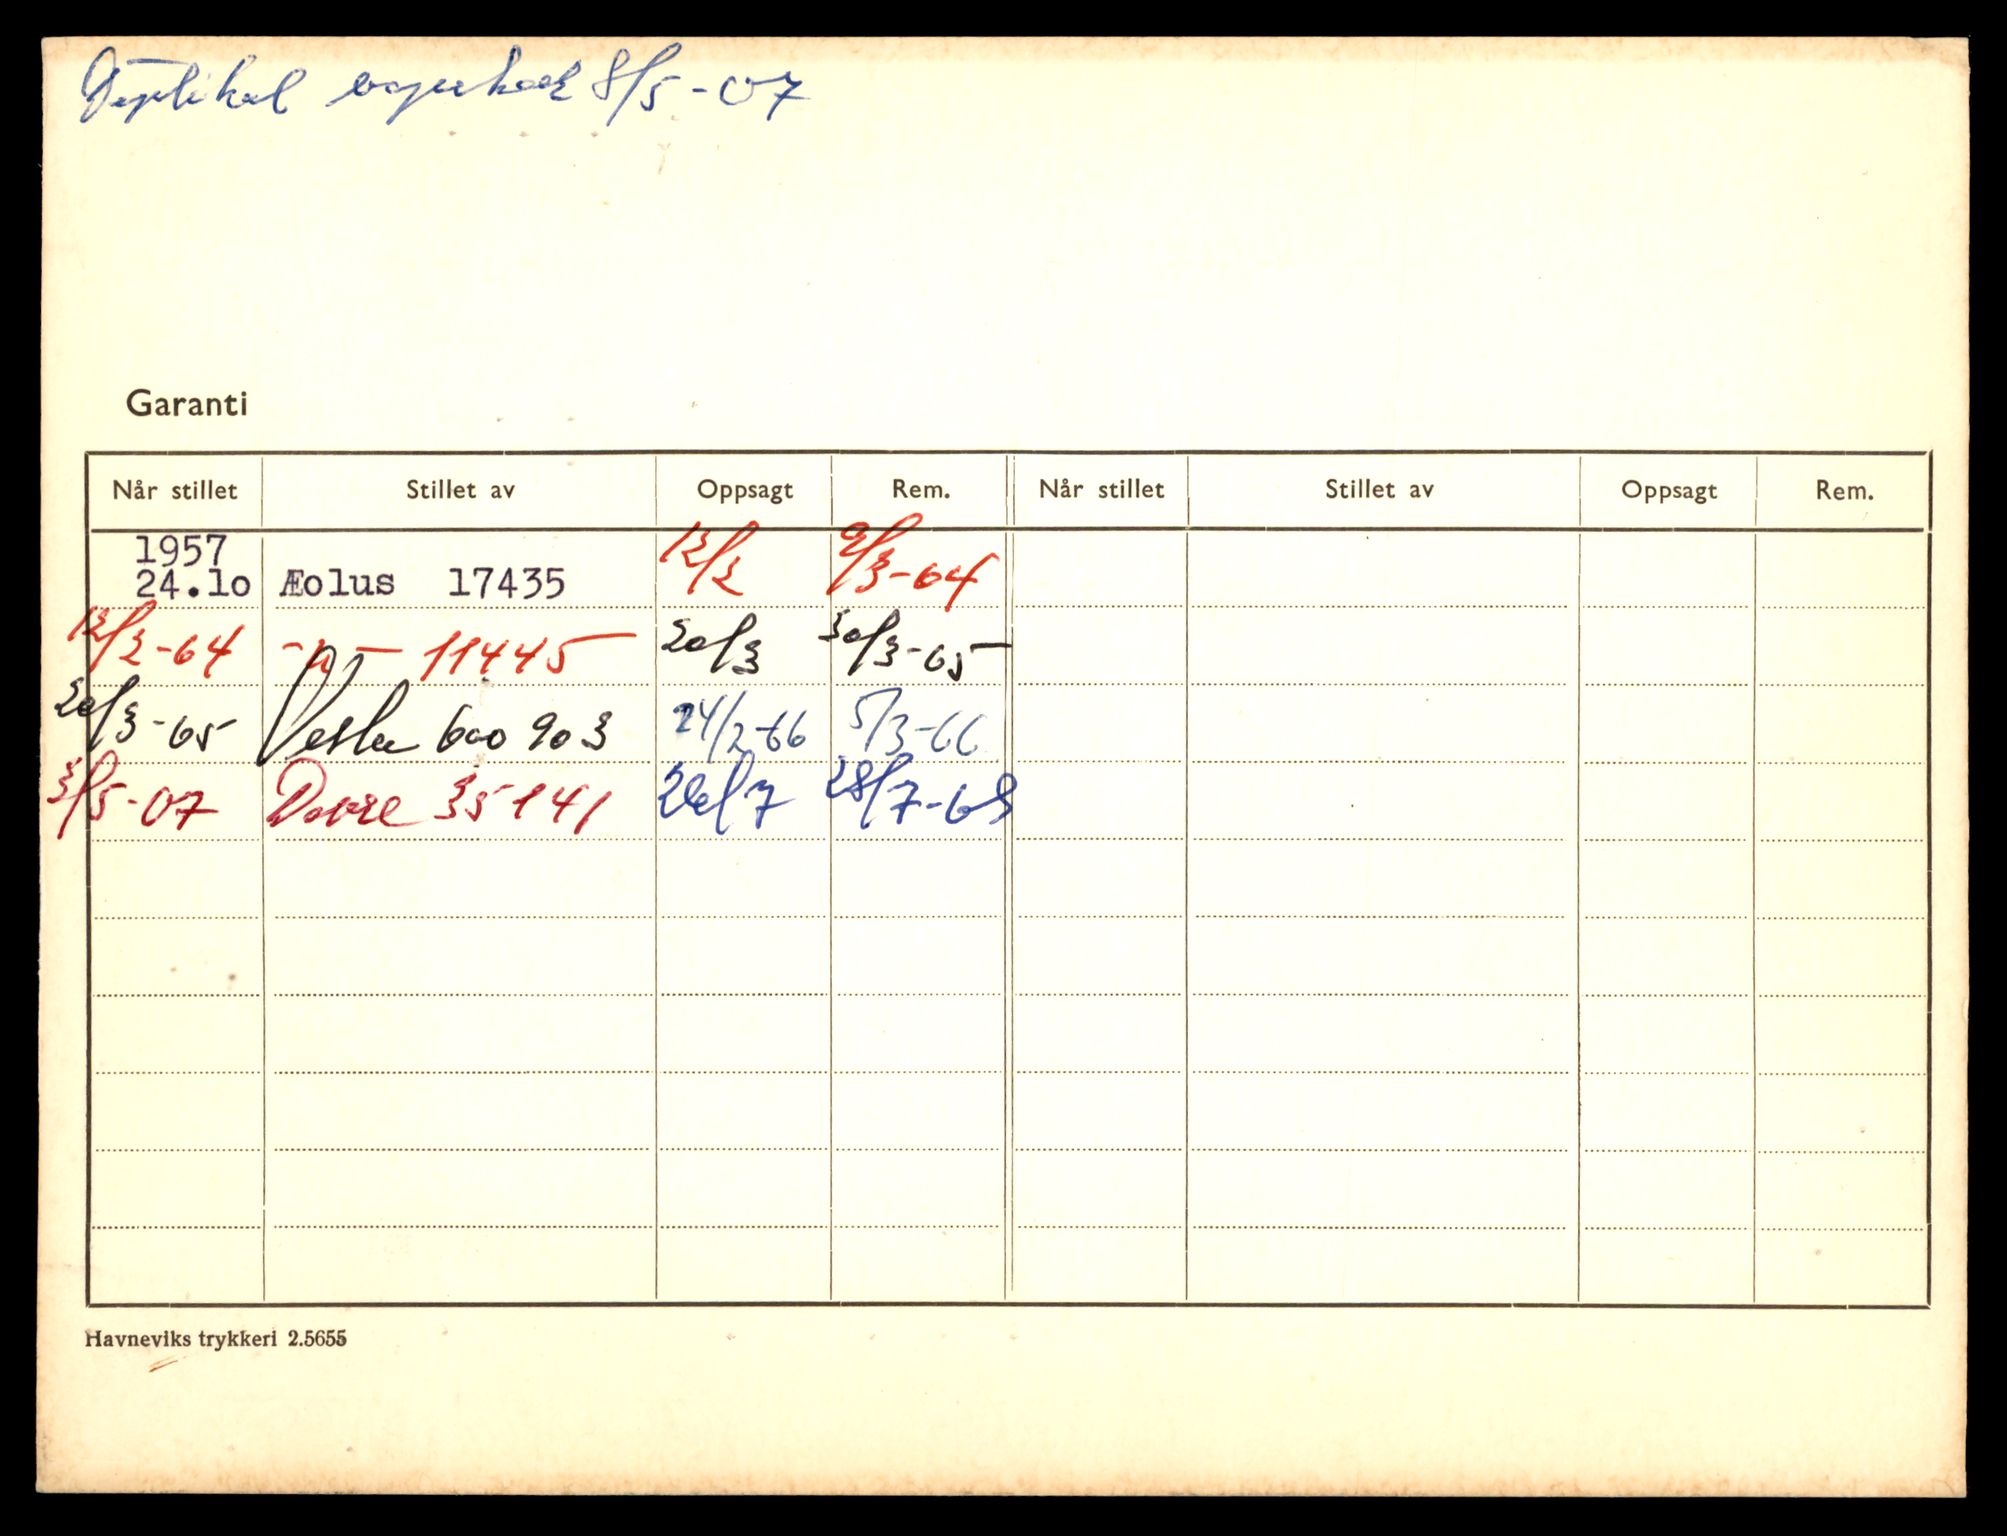 Duplikat vognkort 8/5-67
Garanti
Når stillet Stillet av Oppsagt Rem. Når stillet Stillet av Oppsagt Rem.
1957
24.lo Æolus 17435 12/2 9/3-64
12/2-64 -"- 11445 20/3 30/3-65
20/3-65 Vesta 600903 24/2-66 5/3-66
3/5-67 Dovre 35141 26/7 28/7-68
Havneviks trykkeri 2.5655